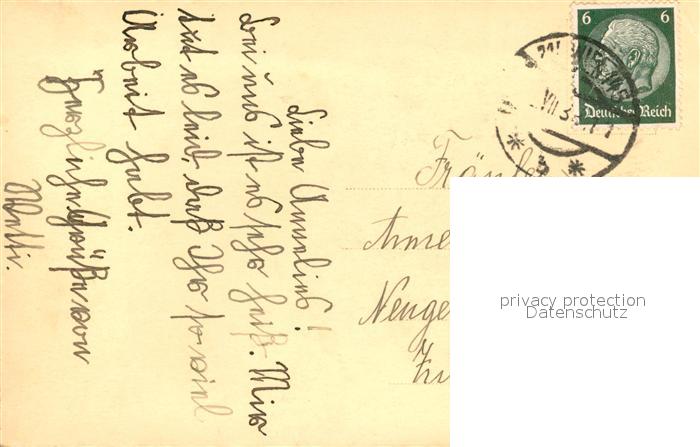 Liebe Annelies!
Bei uns ist es sehr heiß. Mir
tut es leid, daß Ihr so viel
Arbeit habt.
Herzliche Grüße von
6 6
Deutsches Reich
VII 3
Fräulein
Neuge
privacy protection
Datenschutz